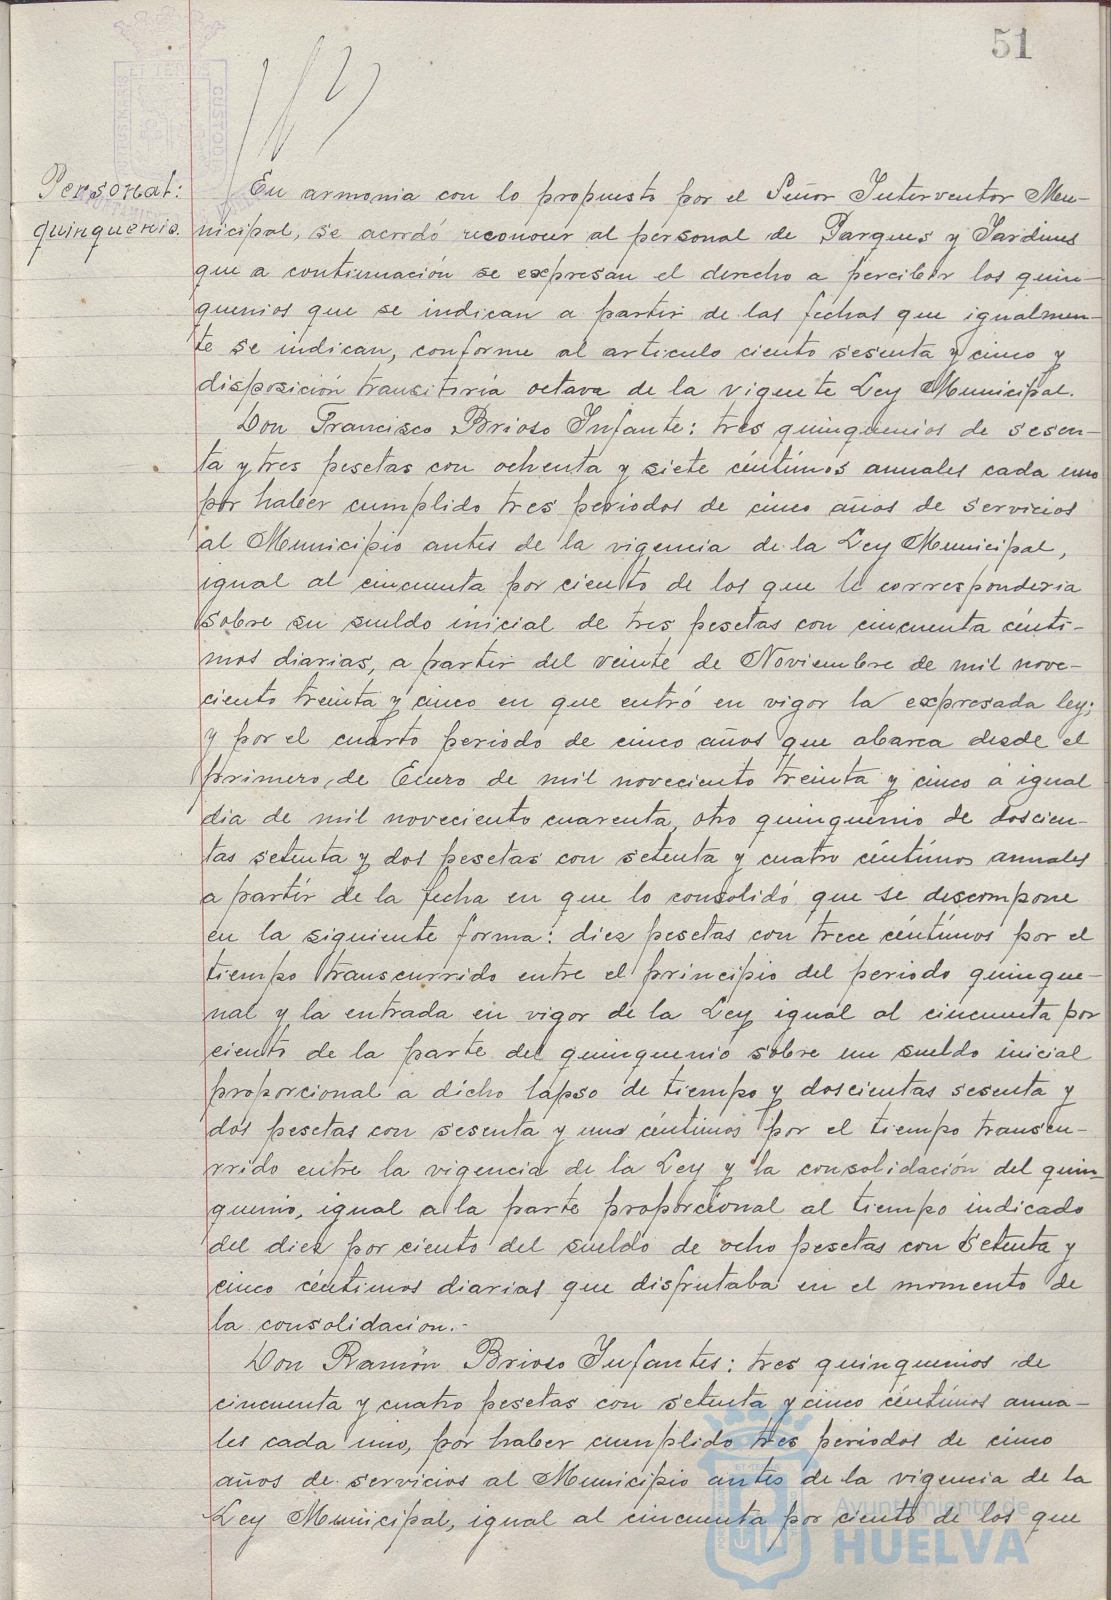 51
Personal:
quinquenio.
En armonia con lo propuesto por el Señor Interventor Mu-
nicipal, se acordó reconocer al personal de Parques y Jardines
que a continuación se expresan el derecho a percibir los quin-
quenios que se indican a partir de las fechas que igualmen-
te se indican, conforme al articulo ciento sesenta y cinco y
disposición transitoria octava de la vigente Ley Municipal.
Don Francisco Brioso Infante: tres quinquenios de sesen-
ta y tres pesetas con ochenta y siete céntimos anuales cada uno
por haber cumplido tres periodos de cinco años de servicios
al Municipio antes de la vigencia de la Ley Municipal,
igual al cincuenta por ciento de los que le corresponderia
sobre su sueldo inicial de tres pesetas con cincuenta cénti-
mos diarias, a partir del veinte de Noviembre de mil nove-
ciento treinta y cinco en que entró en vigor la expresada ley;
y por el cuarto periodo de cinco años que abarca desde el
primero de Enero de mil noveciento treinta y cinco a igual
dia de mil noveciento cuarenta, otro quinquenio de doscien-
tas setenta y dos pesetas con setenta y cuatro céntimos anuales
a partir de la fecha en que lo consolidó que se descompone
en la siguiente forma: diez pesetas con trece céntimos por el
tiempo transcurrido entre el principio del periodo quinque-
nal y la entrada en vigor de la Ley igual al cincuenta por
ciento de la parte del quinquenio sobre un sueldo inicial
proporcional a dicho lapso de tiempo y doscientas sesenta y
dos pesetas con sesenta y uno céntimos por el tiempo transcu-
rrido entre la vigencia de la Ley y la consolidación del quin-
quenio, igual a la parte proporcional al tiempo indicado
del diez por ciento del sueldo de ocho pesetas con setenta y
cinco céntimos diarias que disfrutaba en el momento de
la consolidacion.-
Don Ramón Brioso Infantes: tres quinquenios de
cincuenta y cuatro pesetas con setenta y cinco céntimos anua-
les cada uno, por haber cumplido tres periodos de cinco
años de servicios al Municipio antes de la vigencia de la
Ley Municipal, igual al cincuenta por ciento de los que
Ayuntamiento de
HUELVA